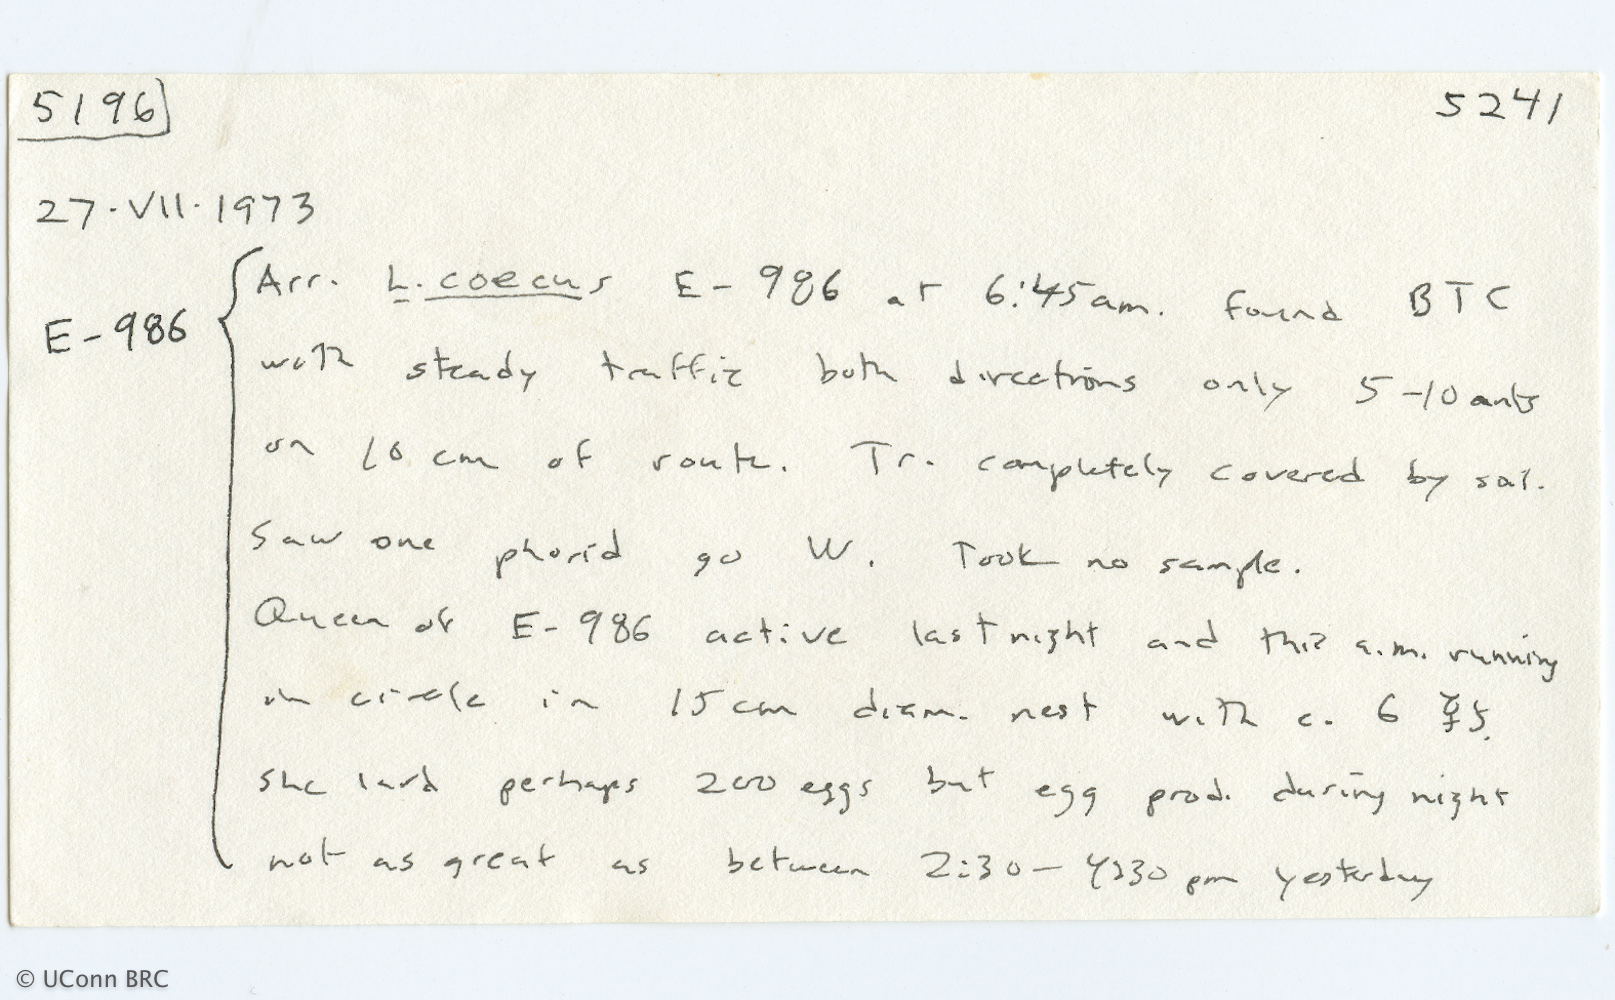 5196 5241
27·VII·1973
E-986
Arr. L. coecus E-986 at 6:45am. Found BTC
with steady traffic both directions only 5-10 ants
on 10 cm of route. Tr. completely covered by soil.
Saw one phorid go W. Took no sample.
Queen of E-986 active last night and this a.m. running
in circle in 15cm diam. nest with c. 6 ☿s.
She laid perhaps 200 eggs but egg prod. during night
not as great as between 2:30-4:30 pm yesterday
© UConn BRC